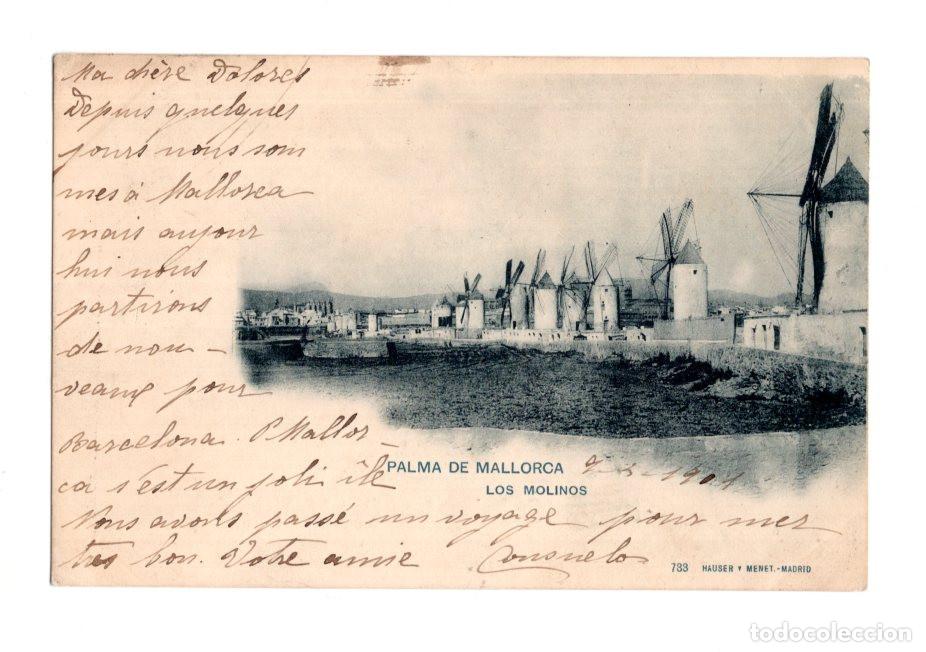 Ma chère Dolores
Depuis quelques
jours nous som
mes à Mallorca
mais aujour
hui nous
partirons
de nou –
veaux pour
Barcelona. P. Mallor –
ca s'est un joli ile
Nous avons passé un voyage pour mer
tres bon. Votre amie Consuelo
PALMA DE MALLORCA
LOS MOLINOS
1901
733 HAUSER Y MENET.-MADRID
todocoleccion